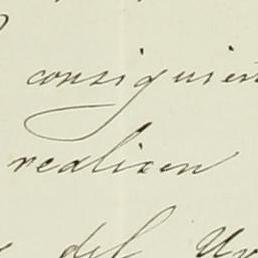 consiguien
realicen
del Un